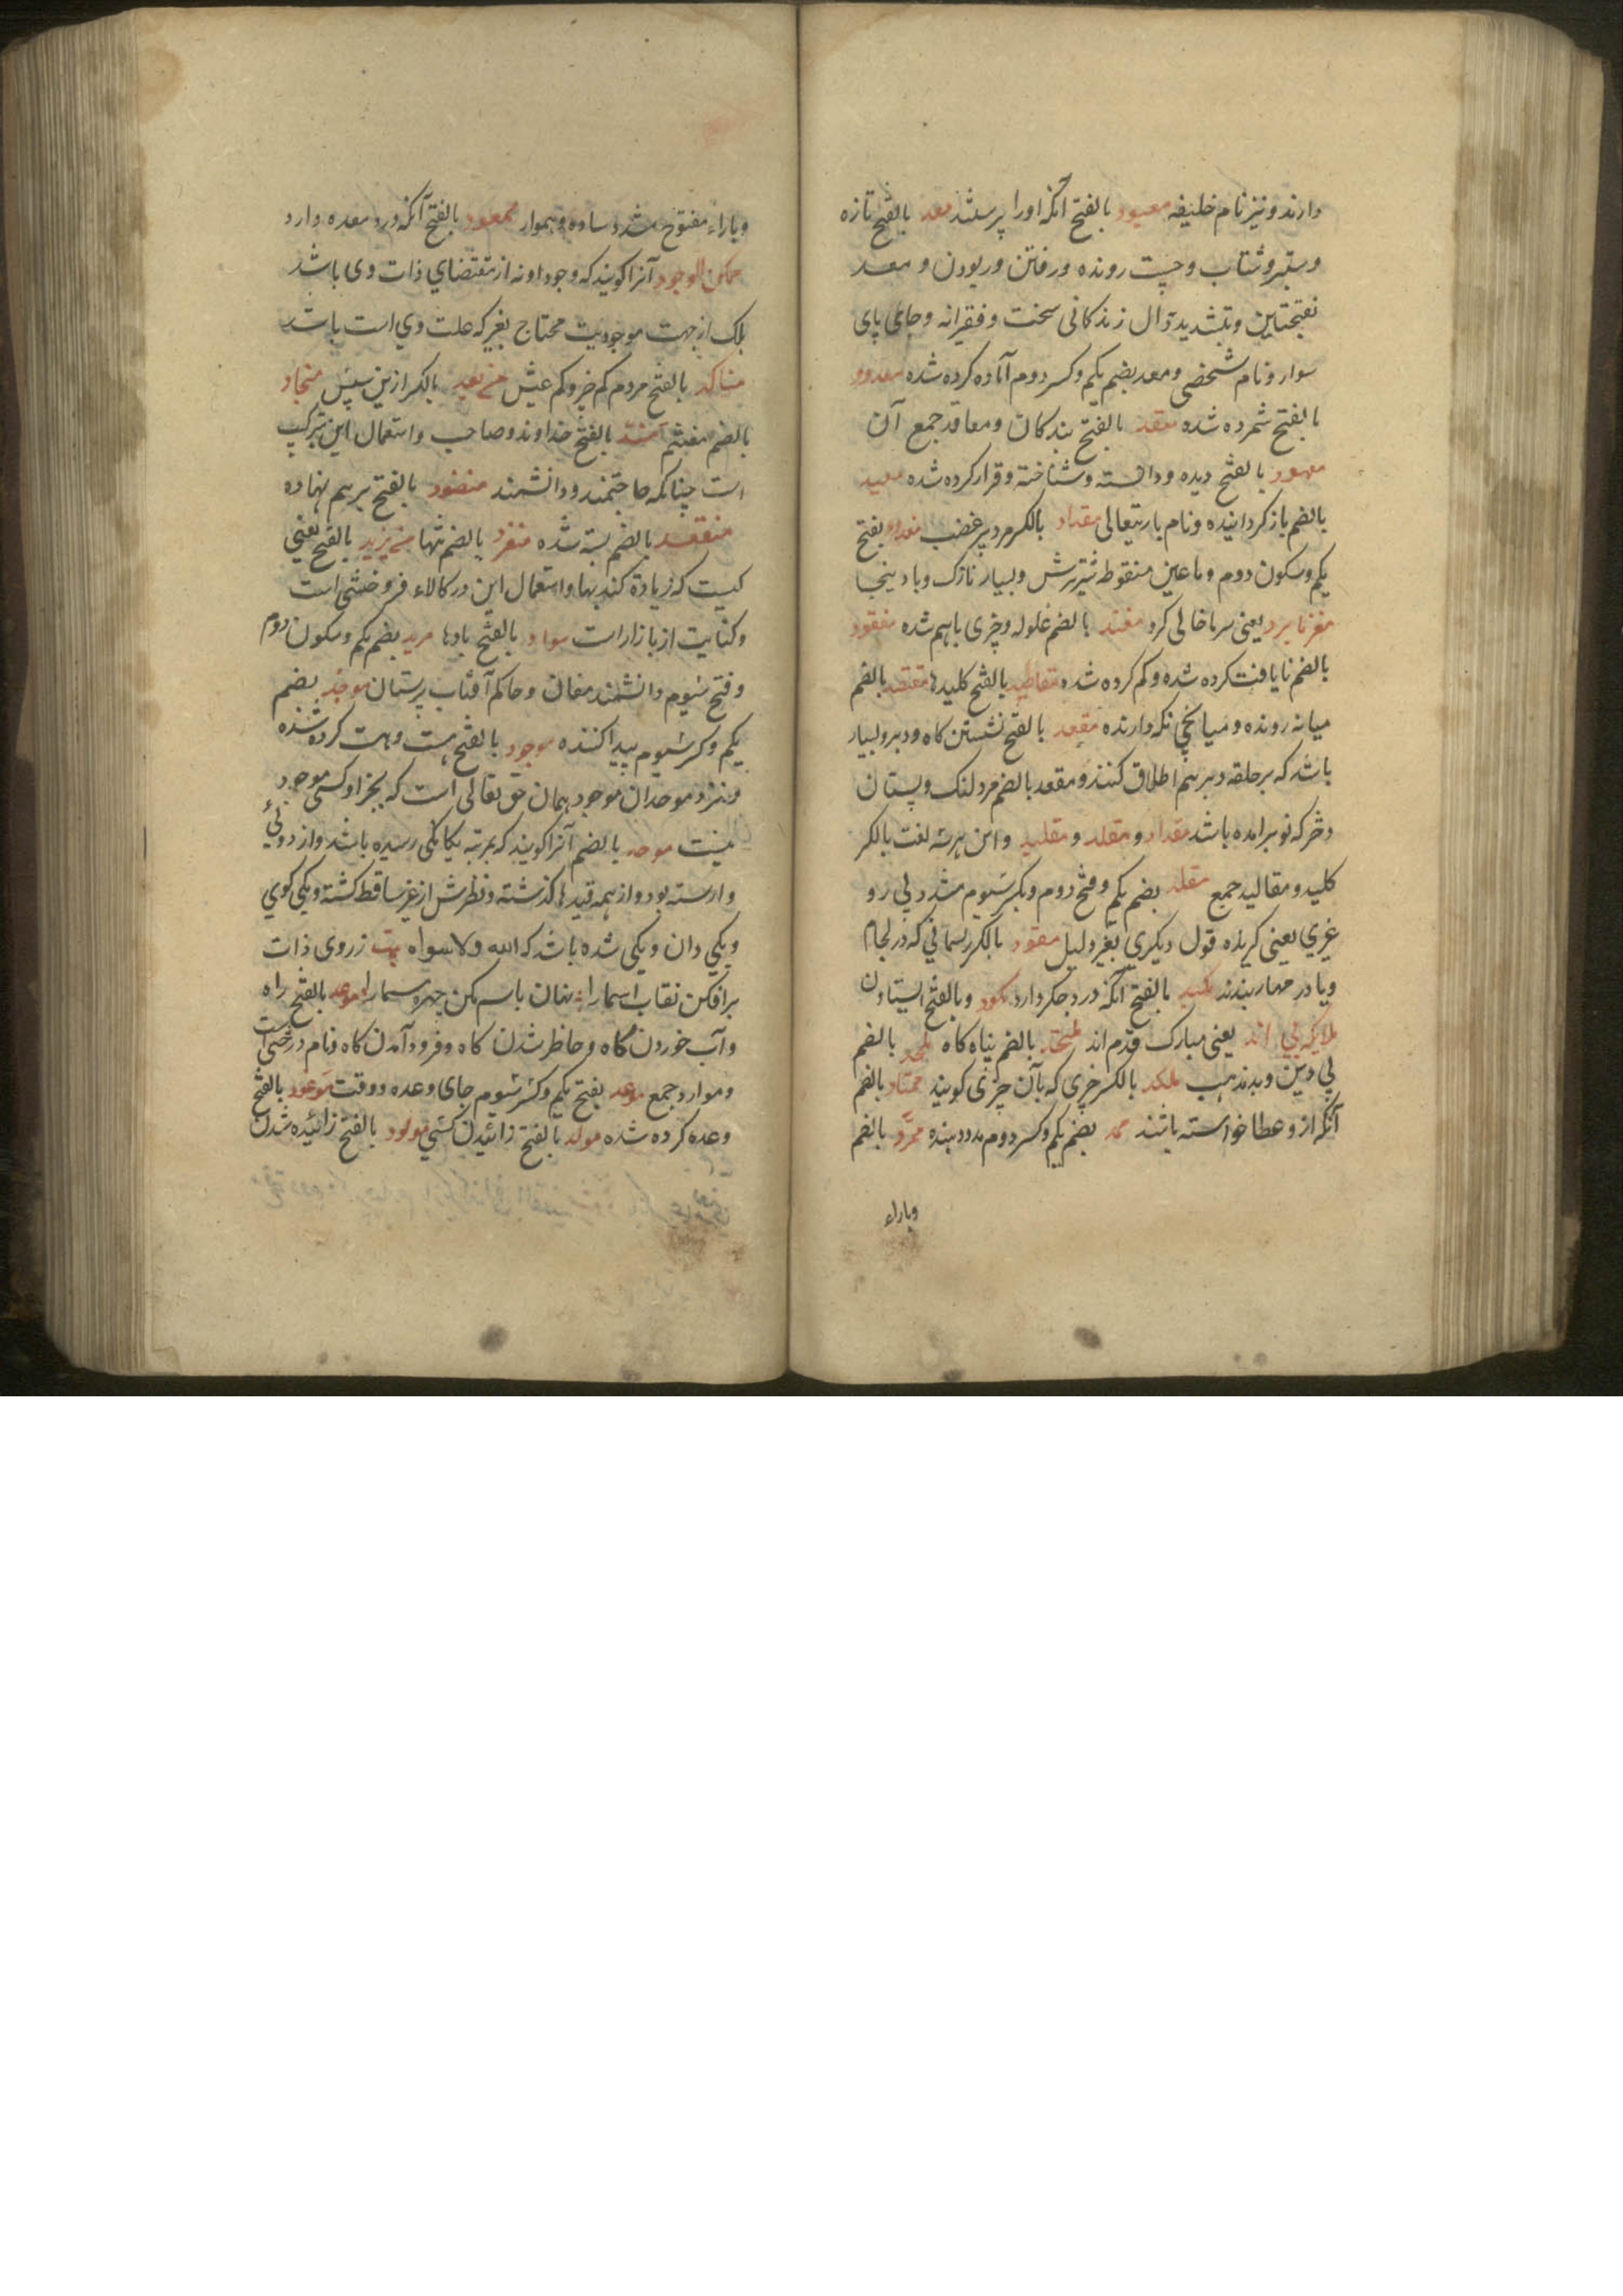 دارند و نیز نام خلیفه معبود بالفتح آنکه او را پرستند معد بالفتح تازه
و ستبر و شتاب و چست رونده و رفتن و ربودن و معد
بفتحتین و تشدید دال زندکانی سخت و فقیرانه و جای پای
سوار و نام شخصی و معد بضم یکم و کسر دوم آماده کرده شده معدود
بالفتح شمرده شده معقد بالفتح بندکان و معاقد جمع آن
معهود بالفتح دیده و دانسته و شناخته و قرار کرده شده معید
بالضم باز کرداننده و نام باریتعالی مقداد بالکسر مرد پر غضب بفتح
یکم و سکون دوم و با عین منقوطه شیر ترش و بسیار نازک و بادنجا
مغز نابرد یعنی سر ما خالی کرد بالضم غلوله و چیزی باهم شده مفقود
بالضم نایافت کرده شده و کم کرده شده مقالید بالفتح کلیدها مقتصد بالضم
میانه رونده و میانجی نکه دارنده مقعد بالفتح نشستن کاه و دبر و بسیار
باشد که بر حلقه دبر هم اطلاق کنند و مقعد بالضم مرد لنک و پستان
دختر که نو برامده باشد مقداد و مقلد و مقلید و این هر سه لغت بالکسر
کلید و مقالید جمع مقلد بضم یکم و فتح دوم و بکسر سیوم مشدد پی رو
غیری یعنی کرنده قول دیکری بغیر دلیل مقود بالکسر ریسمانی که در لجام
و یا در مهار بندند مکبد بالفتح آنکه درد جکر دارد مکود و بالفتح ایستادن
ملایکه پی اند یعنی مبارک قدم اند ملتحد بالضم پناه کاه ملحد بالضم
بی دین و بد مذهب ملکد بالکسر چیزی که بآن چیزی کوبند ممتاد بالضم
آنکه ازو عطا خواسته باشند ممد بضم یکم و کسر دوم مدد دهنده ممرد بالضم
وباراء
وباراء مفتوح مشدد ساده و هموار ممعود بالفتح آنکه درد معده دارد
ممکن الوجود آنرا کویند که وجود او نه از مقتضای ذات وی باشد
بلک از جهت موجودیت محتاج بغیر که علت وی است باشد
مناکد بالفتح مردم کم خیر و کم عیش من بعد بالکسر ازین سپس منجاد
بالضم مند بالفتح خداوند و صاحب و استعمال این بترکیب
است چنانکه حاجتمند و دانشمند منضود بالفتح برهم نهاده
منعقد بالضم بسته شده منفرد بالضم تنها من یزید بالفتح یعنی
کیست که زیاده کند بها و استعمال این در کالاء فروختنی است
و کنایت از بازار است مواد بالفتح مادها موبد بضم یکم و سکون دوم
و فتح سیوم دانشمند مغان و حاکم آفتاب پرستان موجد بضم
یکم و کسر سیوم پیدا کننده موجود بالفتح هست و هست کرده شده
و نزد موحدان موجود همان حق تعالی است که بجز او کسی موجود
نیست موحد بالضم آنرا کویند که بمرتبه یکانکی رسیده باشد و از دوئی
وارسته بود و از همه قیدها کذشته و نظرش از غیر ساقط کشته و یکی کوی
و یکی دان و یکی شده باشد که الله ولا سواه بیت ز روی ذات
برافکن نقاب اسما را نهان باسم مکن چهره مسما را موعد بالفتح راه
و آب خوردن کاه و حاظر شدن کاه و فرود آمدن کاه و نام درختی است
و موارد جمع موعد بفتح یکم و کسر سیوم جای وعده و وقت موعود بالفتح
وعده کرده شده مولد بالفتح زائیدن کسی مولود بالفتح زائیده شدن